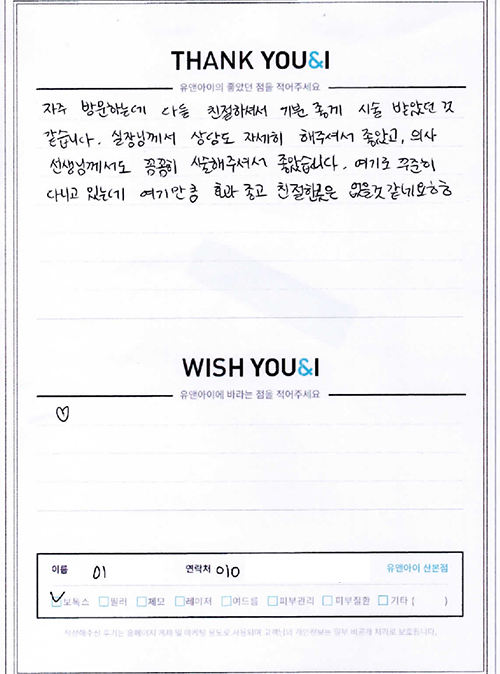 THANK YOU&I
유앤아이의 좋았던 점을 적어주세요
자주 방문하는데 다들 친절하셔서 기분 좋게 시술 받았던 것
같습니다. 실장님께서 상담도 자세히 해주셔서 좋았고, 의사
선생님께서도 꼼꼼히 시술해주셔서 좋았습니다. 여기로 꾸준히
다니고 있는데 여기만큼 효과 좋고 친절한곳은 없을것 같네요ㅎㅎ
WISH YOU&I
유앤아이에 바라는 점을 적어주세요
♡
이름 이 연락처 010 유앤아이 산본점
보톡스 필러 제모 레이저 여드름 피부관리 피부질환 기타 ( )
작성해주신 후기는 홈페이지 게재 및 마케팅 용도로 사용되며 고객님의 개인정보는 일부 비공개 처리로 보호됩니다.